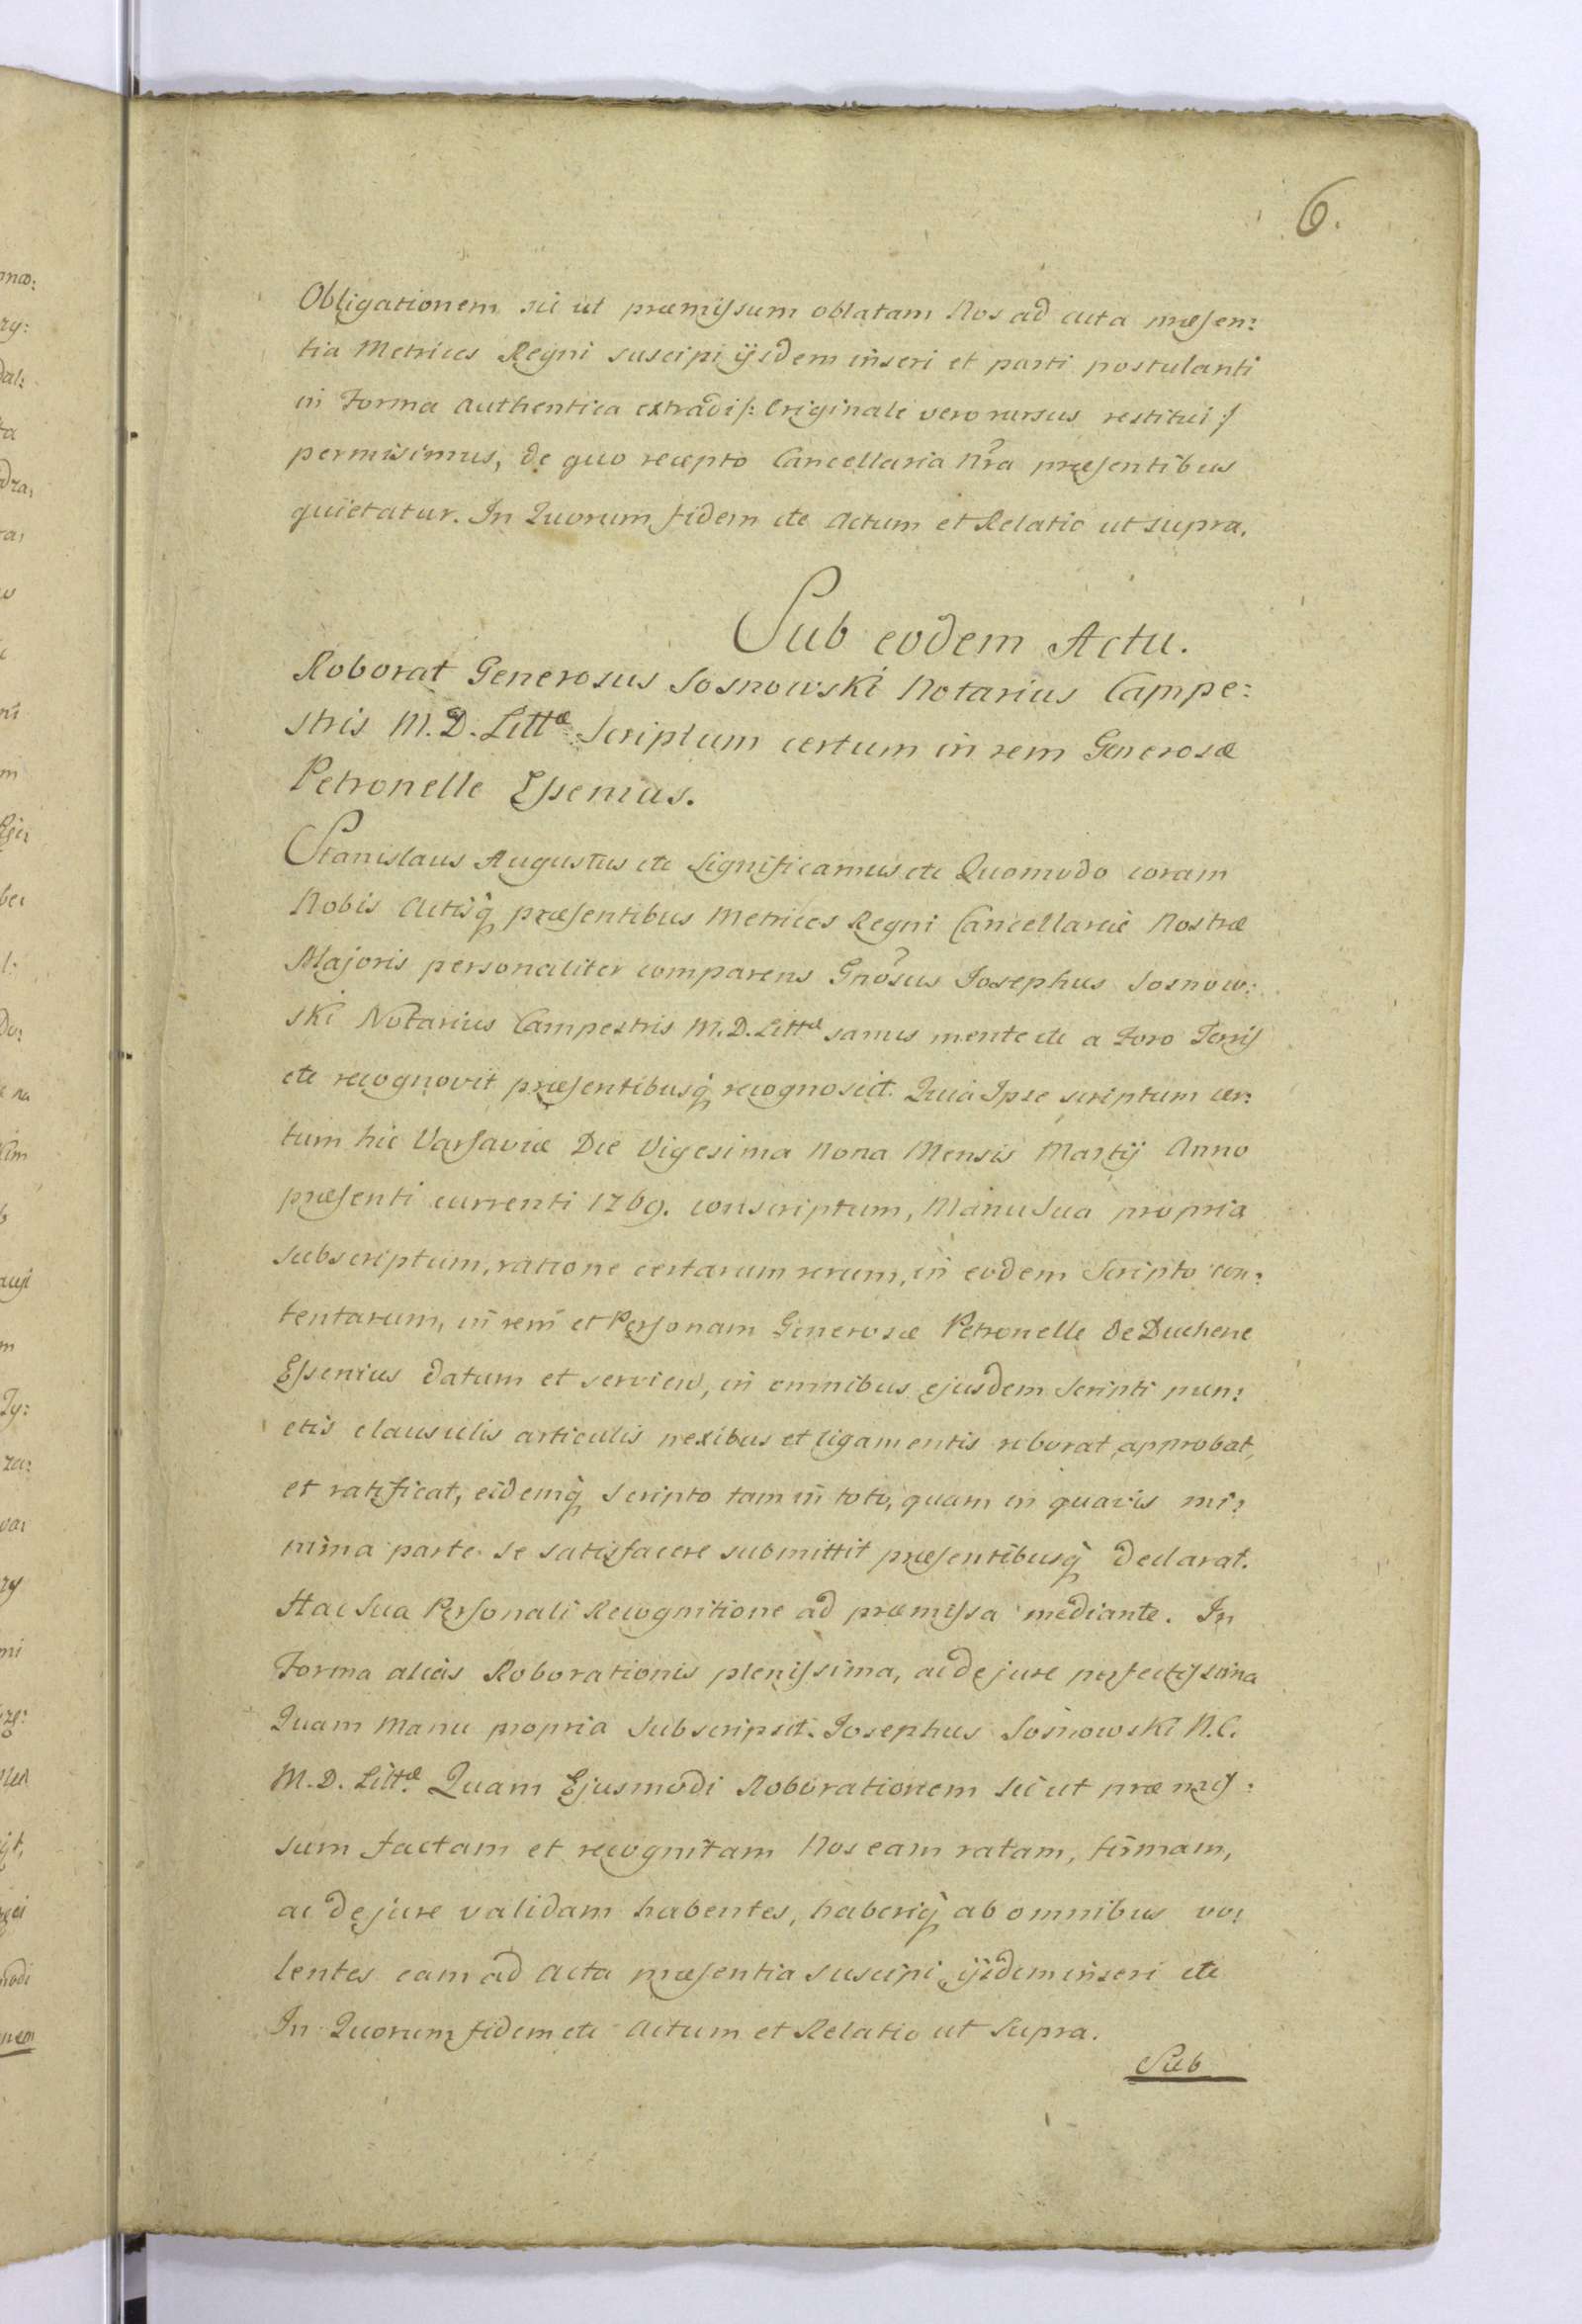 6.
Obligationem sic ut præmissum oblatam Nos ad acta præsen:
tia Metrices Regni suscipi ijsdem inseri et parti postulanti
in Forma Authentica extradi /: Originali vero rursus restitui :/
permisimus, de quo recepto Cancellaria Nra præsentibus
quietatur. In Quorum fidem etc Actum et Relatio ut supra.
Sub eodem Actu.
Roborat Generosus Sosnowski Notarius Campe:
stris M. D. Littæ Scriptum certum in rem Generosæ
Petronelle Essenius.
Stanislaus Augustus etc Significamus etc Quomodo coram
Nobis Actisq præsentibus Metrices Regni Cancellariæ Nostræ
Majoris personaliter comparens Gnosus Josephus Sosnow:
ski Notarius Campestris M. D. Littæ sanus mente etc a Foro Terris
etc recognovit præsentibusq recognoscit. Quia Ipse scriptum cer:
tum hic Varsaviæ Die Vigesima Nona Mensis Martij Anno
præsenti currenti 1769. conscriptum, Manu Sua propria
subscriptum, ratione certarum rerum, in eodem Scripto con:
tentarum, in rem et Personam Generosæ Petronelle de Duchene
Essenius datum et serviens, in omnibus ejusdem Scripti pun:
ctis clausulis articulis nexibus et ligamentis roborat approbat,
et ratificat, eidemq Scripto tam in toto, quam in quavis mi:
nima parte se satisfacere submittit præsentibusq declarat.
Hac Sua Personali Recognitione ad præmissa mediante. In
Forma alias Roborationis plenissima, ac de jure perfectissima
Quam Manu propria Subscripsit. Josephus Sosnowski N. C.
M. D. Littæ. Quam Ejusmodi Roborationem sic ut præmis:
sum factam et recognitam Nos eam ratam, firmam,
ac de jure validam habentes, haberiq ab omnibus vo:
lentes eam ad Acta præsentia suscipi ijsdem inseri etc
In Quorum fidem etc Actum et Relatio ut Supra.
Sub